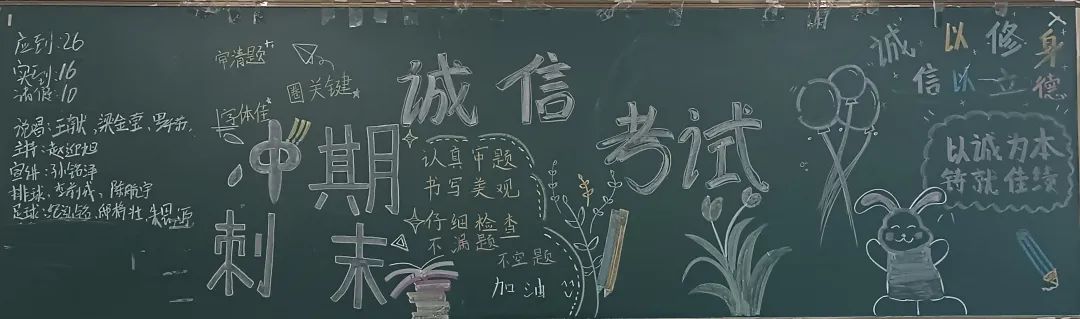 应到:26
实到:16
请假:10
说唱:王献、梁金莹、
主持:赵迎旭
宣讲:孙铭泽
排球、李前成、陈航宇
足球:
审清题
圈关键
字体佳
诚信
考试
冲期
刺末
认真审题
书写美观
仔细检查
不漏题
不空题
加油
诚以修身
信以立德
以诚为本
铸就佳绩